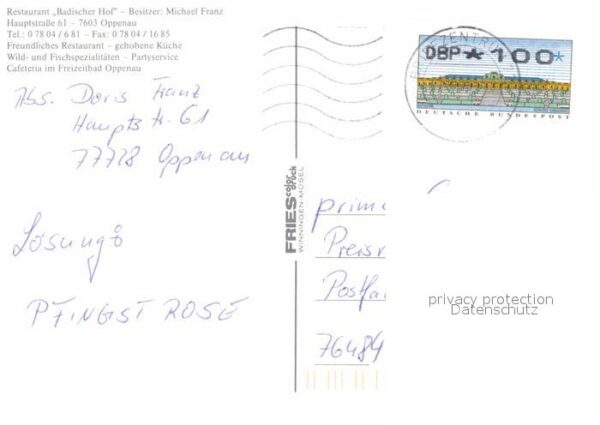 Restaurant „Badischer Hof" – Besitzer: Michael Franz
Hauptstraße 61 – 7603 Oppenau
Tel.: 0 78 04 / 6 81 – Fax: 0 78 04 / 16 85
Freundliches Restaurant – gehobene Küche
Wild- und Fischspezialitäten – Partyservice
Cafeteria im Freizeitbad Oppenau
Abs. Doris Franz
Hauptstr. 61
77728 Oppenau
Lösung:
PFINGSTROSE
FRIES color druck
WINNINGEN-MOSEL
DBP * 100 *
DEUTSCHE BUNDESPOST
prima
Preisr
Postfa
76484
privacy protection
Datenschutz